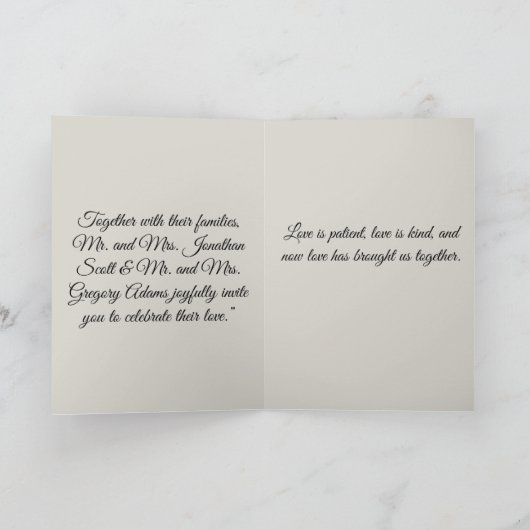 Together with their families,
Mr. and Mrs. Jonathan
Scott & Mr. and Mrs.
Gregory Adams joyfully invite
you to celebrate their love."
Love is patient, love is kind, and
now love has brought us together.